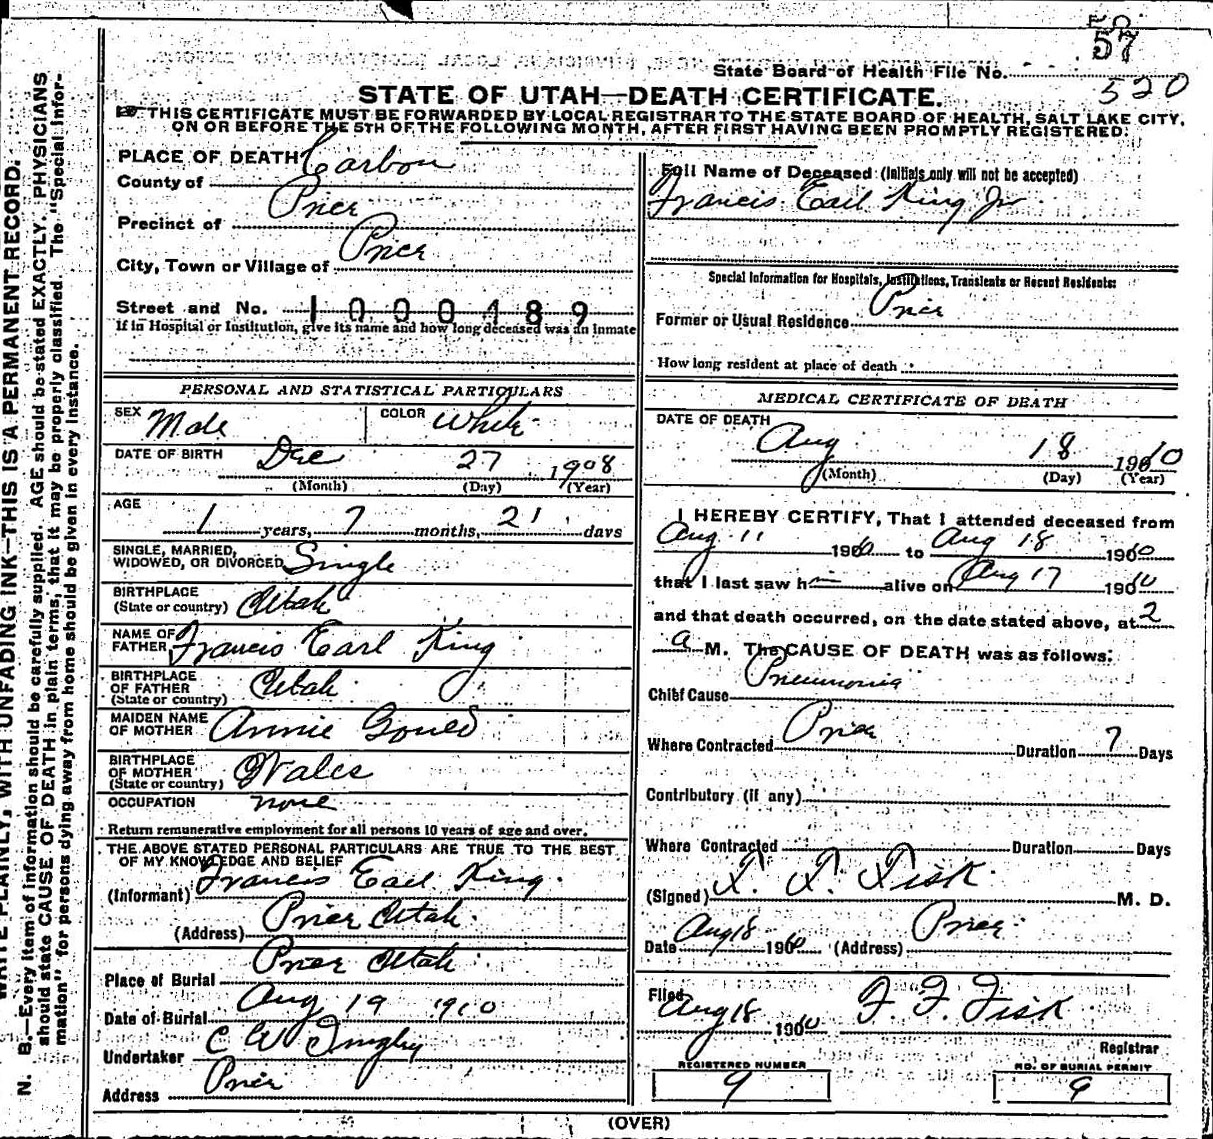 57
State Board of Health File No. 520
STATE OF UTAH—DEATH CERTIFICATE.
THIS CERTIFICATE MUST BE FORWARDED BY LOCAL REGISTRAR TO THE STATE BOARD OF HEALTH, SALT LAKE CITY,
ON OR BEFORE THE 5TH OF THE FOLLOWING MONTH, AFTER FIRST HAVING BEEN PROMPTLY REGISTERED.
N. B.—Every item of information should be carefully supplied. AGE should be stated EXACTLY. PHYSICIANS
should state CAUSE OF DEATH in plain terms, that it may be properly classified. The "Special Infor-
mation" for persons dying away from home should be given in every instance.
WRITE PLAINLY, WITH UNFADING INK—THIS IS A PERMANENT RECORD.
PLACE OF DEATH
County of Carbon
Precinct of Price
City, Town or Village of Price
Street and No. 1000489
If in Hospital or Institution, give its name and how long deceased was an inmate
Full Name of Deceased (Initials only will not be accepted)
Francis Earl King Jr
Special Information for Hospitals, Institutions, Transients or Recent Residents:
Former or Usual Residence Price
How long resident at place of death
PERSONAL AND STATISTICAL PARTICULARS
SEX Male COLOR White
DATE OF BIRTH Dec 27 1908
(Month) (Day) (Year)
AGE
1 years, 7 months, 21 days
SINGLE, MARRIED,
WIDOWED, OR DIVORCED Single
BIRTHPLACE
(State or country) Utah
NAME OF
FATHER Francis Earl King
BIRTHPLACE
OF FATHER
(State or country) Utah
MAIDEN NAME
OF MOTHER Annie
BIRTHPLACE
OF MOTHER
(State or country) Wales
OCCUPATION none
Return remunerative employment for all persons 10 years of age and over.
THE ABOVE STATED PERSONAL PARTICULARS ARE TRUE TO THE BEST
OF MY KNOWLEDGE AND BELIEF
(Informant) Francis Earl King.
(Address) Price Utah.
Place of Burial Price Utah.
Date of Burial Aug 19 1910
Undertaker C W
Address Price
MEDICAL CERTIFICATE OF DEATH
DATE OF DEATH
Aug 18 1910
(Month) (Day) (Year)
I HEREBY CERTIFY, That I attended deceased from
Aug 11 1910 to Aug 18 1910
that I last saw h alive on Aug 17 1910
and that death occurred, on the date stated above, at 2
a M. The CAUSE OF DEATH was as follows:
Chief Cause Pneumonia
Where Contracted Price Duration 7 Days
Contributory (if any)
Where Contracted Duration Days
(Signed) F. F. Fisk M. D.
Date Aug 18 1910 (Address) Price.
Filed Aug 18 1910 F. F. Fisk
Registrar
REGISTERED NUMBER
9
NO. OF BURIAL PERMIT
9
(OVER)